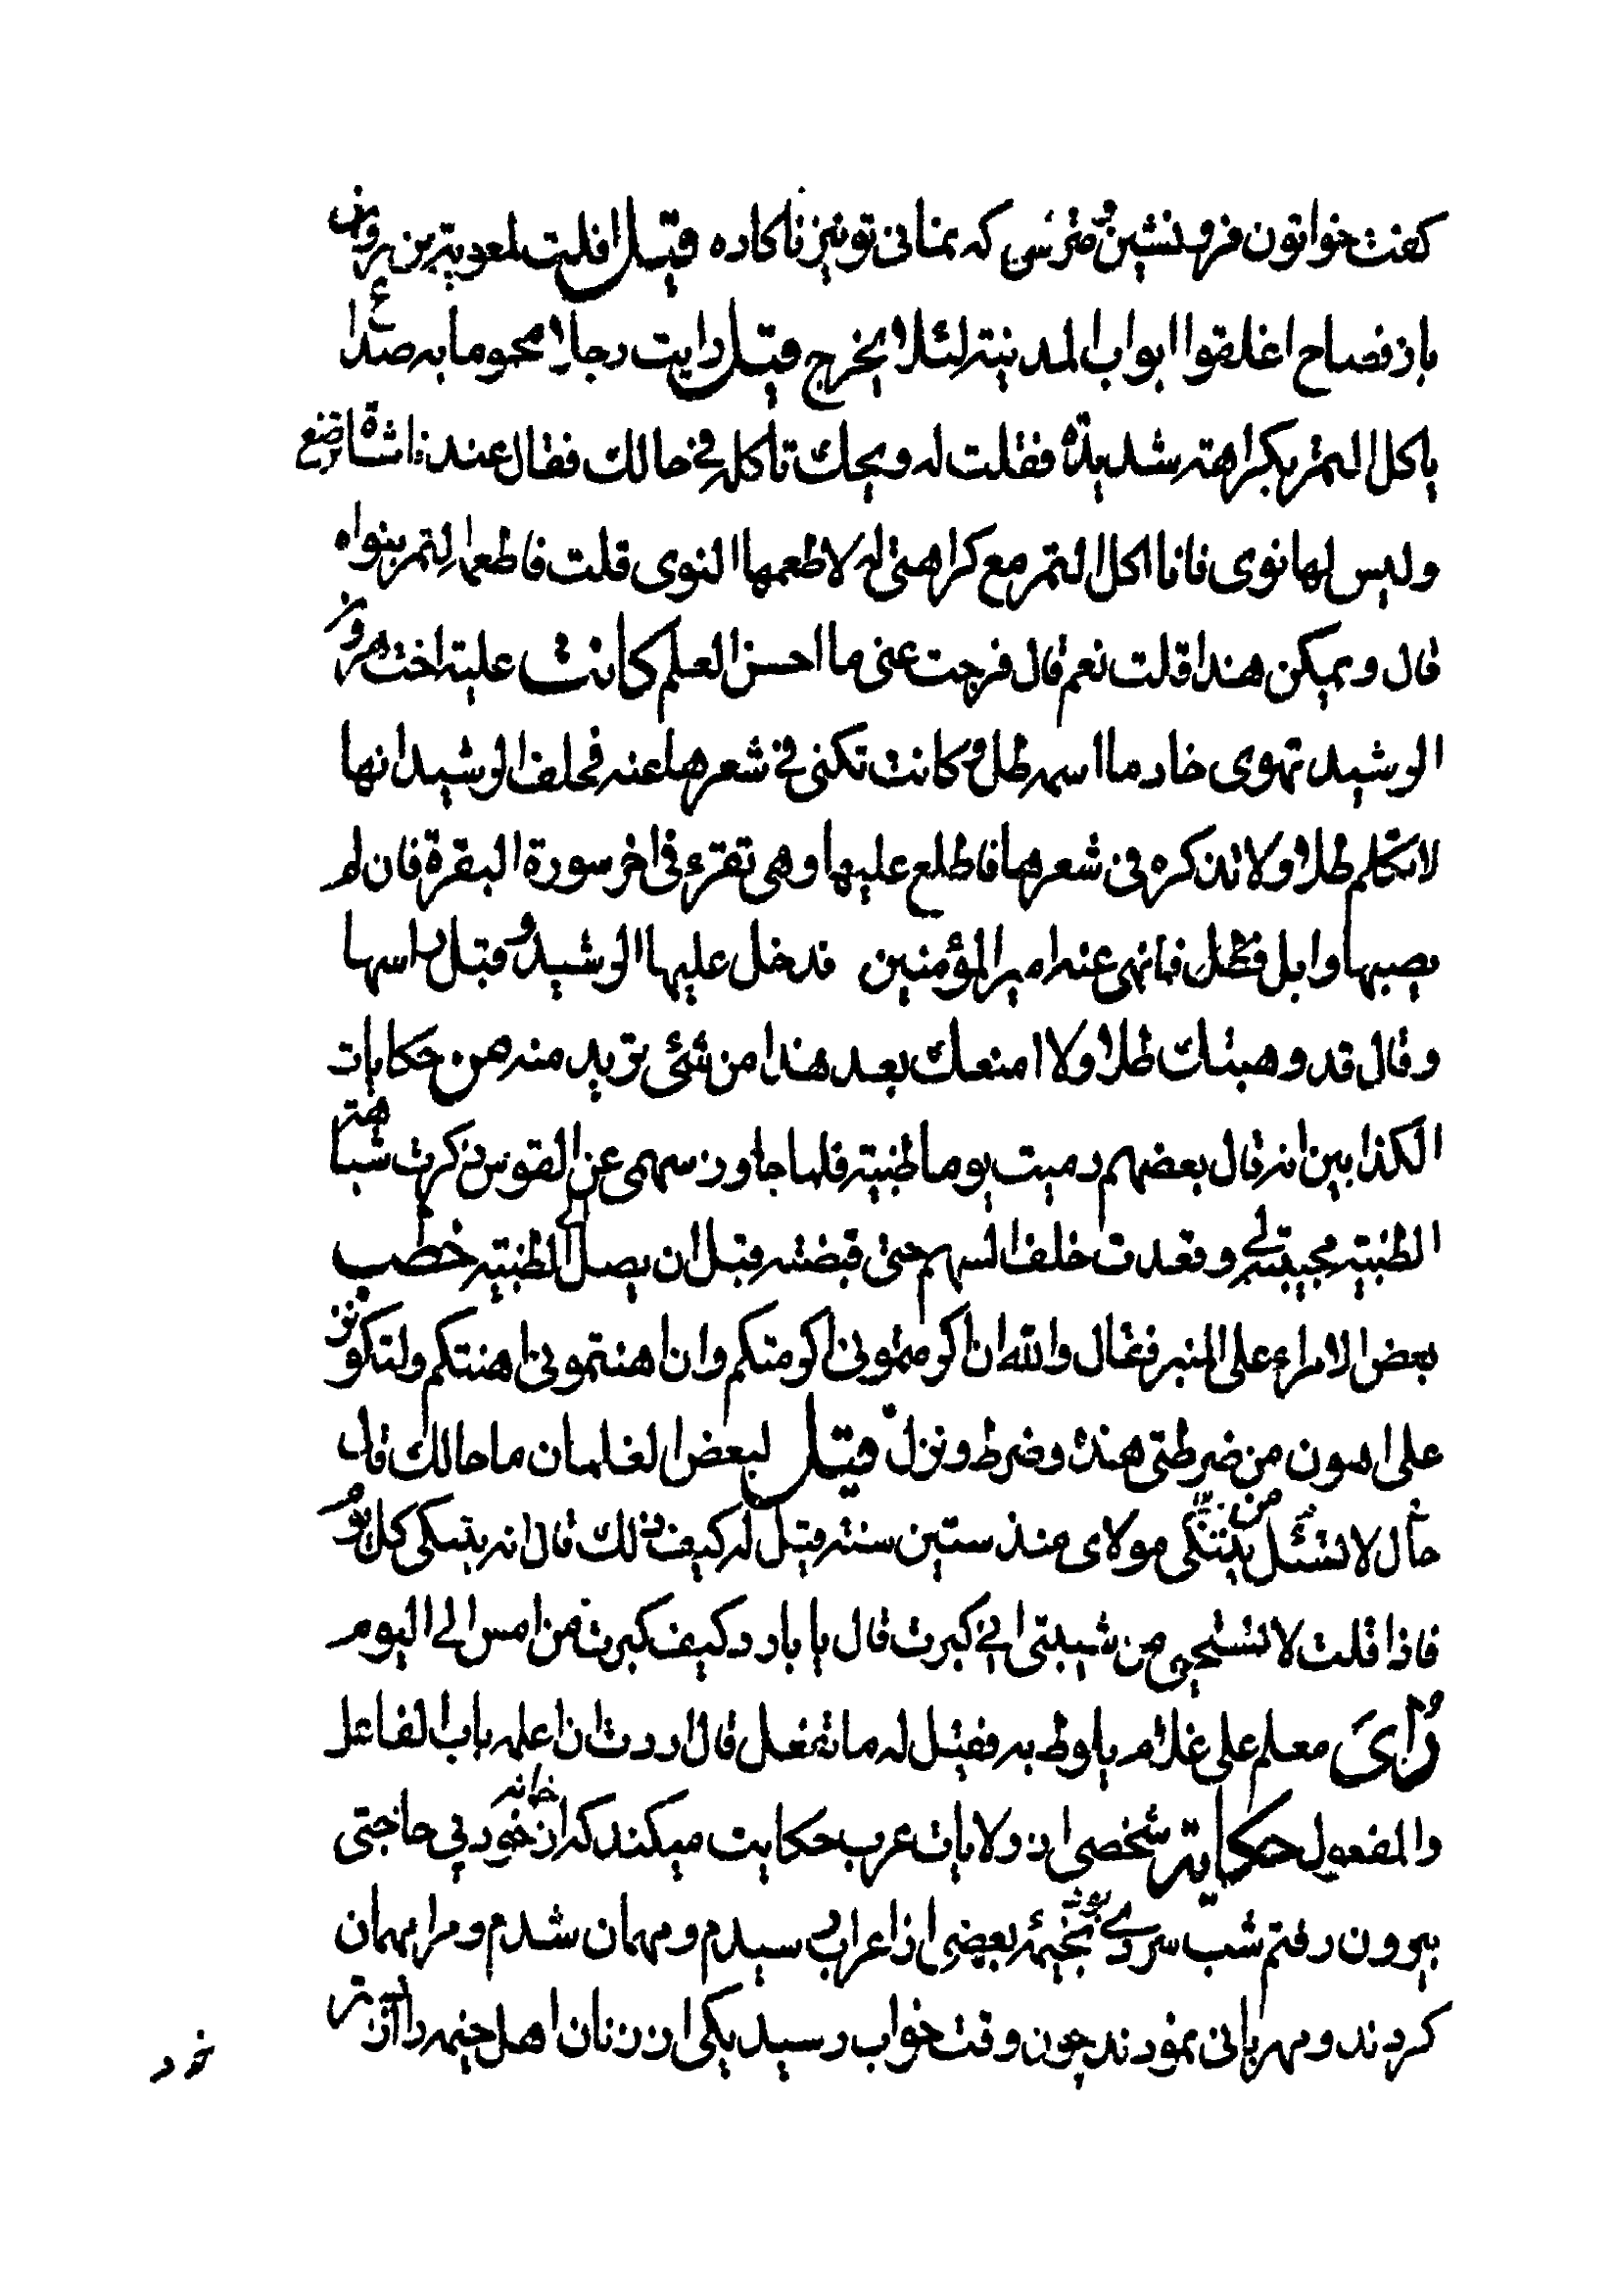 کفت خواتون فرو نشین و مترسی که نمانی تو نیز ناکاده قیل افلت لمعویة بن مروان
باز فصاح اغلقوا ابواب المدینة لئلا یخرج قیل رایت رجلا محموما به صداع
یاکل التمر بکراهة شدیدة فقلت له ویحک تاکله فی حالک فقال عندنا شاة ترضع
ولیس لها نوی فانا اکل التمر مع کراهتی له لاطعمها النوی قلت فاطعمها التمر بنواه
قال ویمکن هذا قلت نعم قال فرجت عنی ما احسن العلم کانت علیة اخت هرون
الرشید تهوی خادما اسمه طل و کانت تکنی فی شعرها عنه فحلف الرشید انها
لا تکلم طلا ولا تذکره فی شعرها فاطلع علیها وهی تقرء فی اخر سورة البقرة فان لم
یصبها وابل فطل فما نهی عنه امیر المؤمنین فدخل علیها الرشید و قبل راسها
وقال قد وهبتک طلا ولا امنعک بعد هذا من شئی تریده منه من حکایات
الکذابین انه قال بعضهم رمیت یوما ظبیة فلما جاوز سهمی عن القوس ذکرت شباهة
الظبیة بحبیبة لی وقعدت خلف السهم حتی قبضته قبل ان یصل الی الظبیة خطب
بعض الامراء علی المنبر فقال والله ان اکرمتمونی اکرمتکم وان اهنتمونی اهنتکم ولتکونن
علی اهون من ضرطتی هذه وضرط ونزل قیل لبعض الغلمان ما حالک قال
حال لا تسئل من یتنکی مولای منذ ستین سنة قیل له کیف ذلک قال انه یتنکی کل یوم
فاذا قلت لا تستحیی من شیبتی انی کبرت قال یا بارد کیف کبرت من امس الی الیوم
رُای معلم علی غلام یلوط به فقیل له ما تفعل قال اردت ان اعلمه باب الفاعل
والمفعول حکایة شخصی از ولایات عرب حکایت میکند که از خانه خود پی حاجتی
بیرون رفتم شب سردی بود بخیمهٔ بعضی از اعراب رسیدم و مهمان شدم و مرا مهمان
کردند و مهربانی نمودند چون وقت خواب رسید یکی از زنان اهل خیمه را از